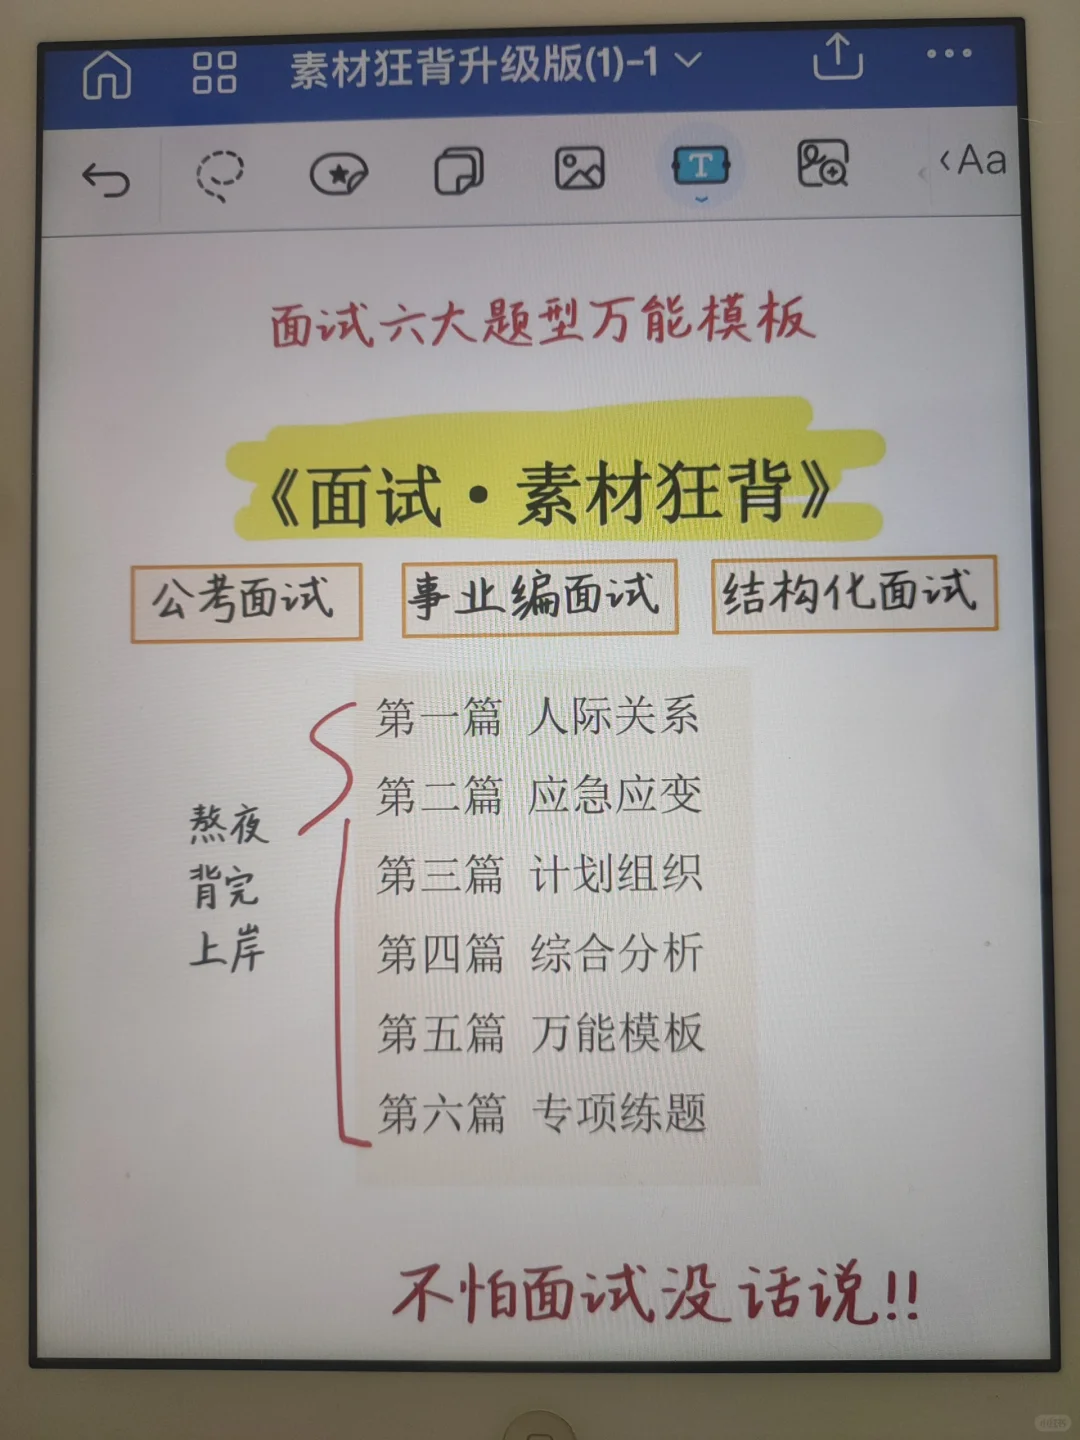 素材狂背升级版(1)-1
T
Aa
面试六大题型万能模板
《面试·素材狂背》
公考面试 事业编面试 结构化面试
第一篇 人际关系
第二篇 应急应变
第三篇 计划组织
第四篇 综合分析
第五篇 万能模板
第六篇 专项练题
熬夜
背完
上岸
不怕面试没话说!!
小红书